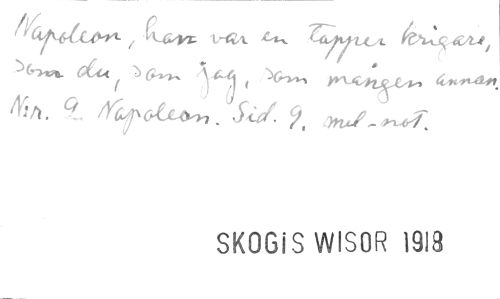 Napoleon, han var en tapper krigare,
som du, som jag, som mången annan.
N:r. 9 Napoleon. Sid. 9. mel-not.
SKOGIS WISOR 1918